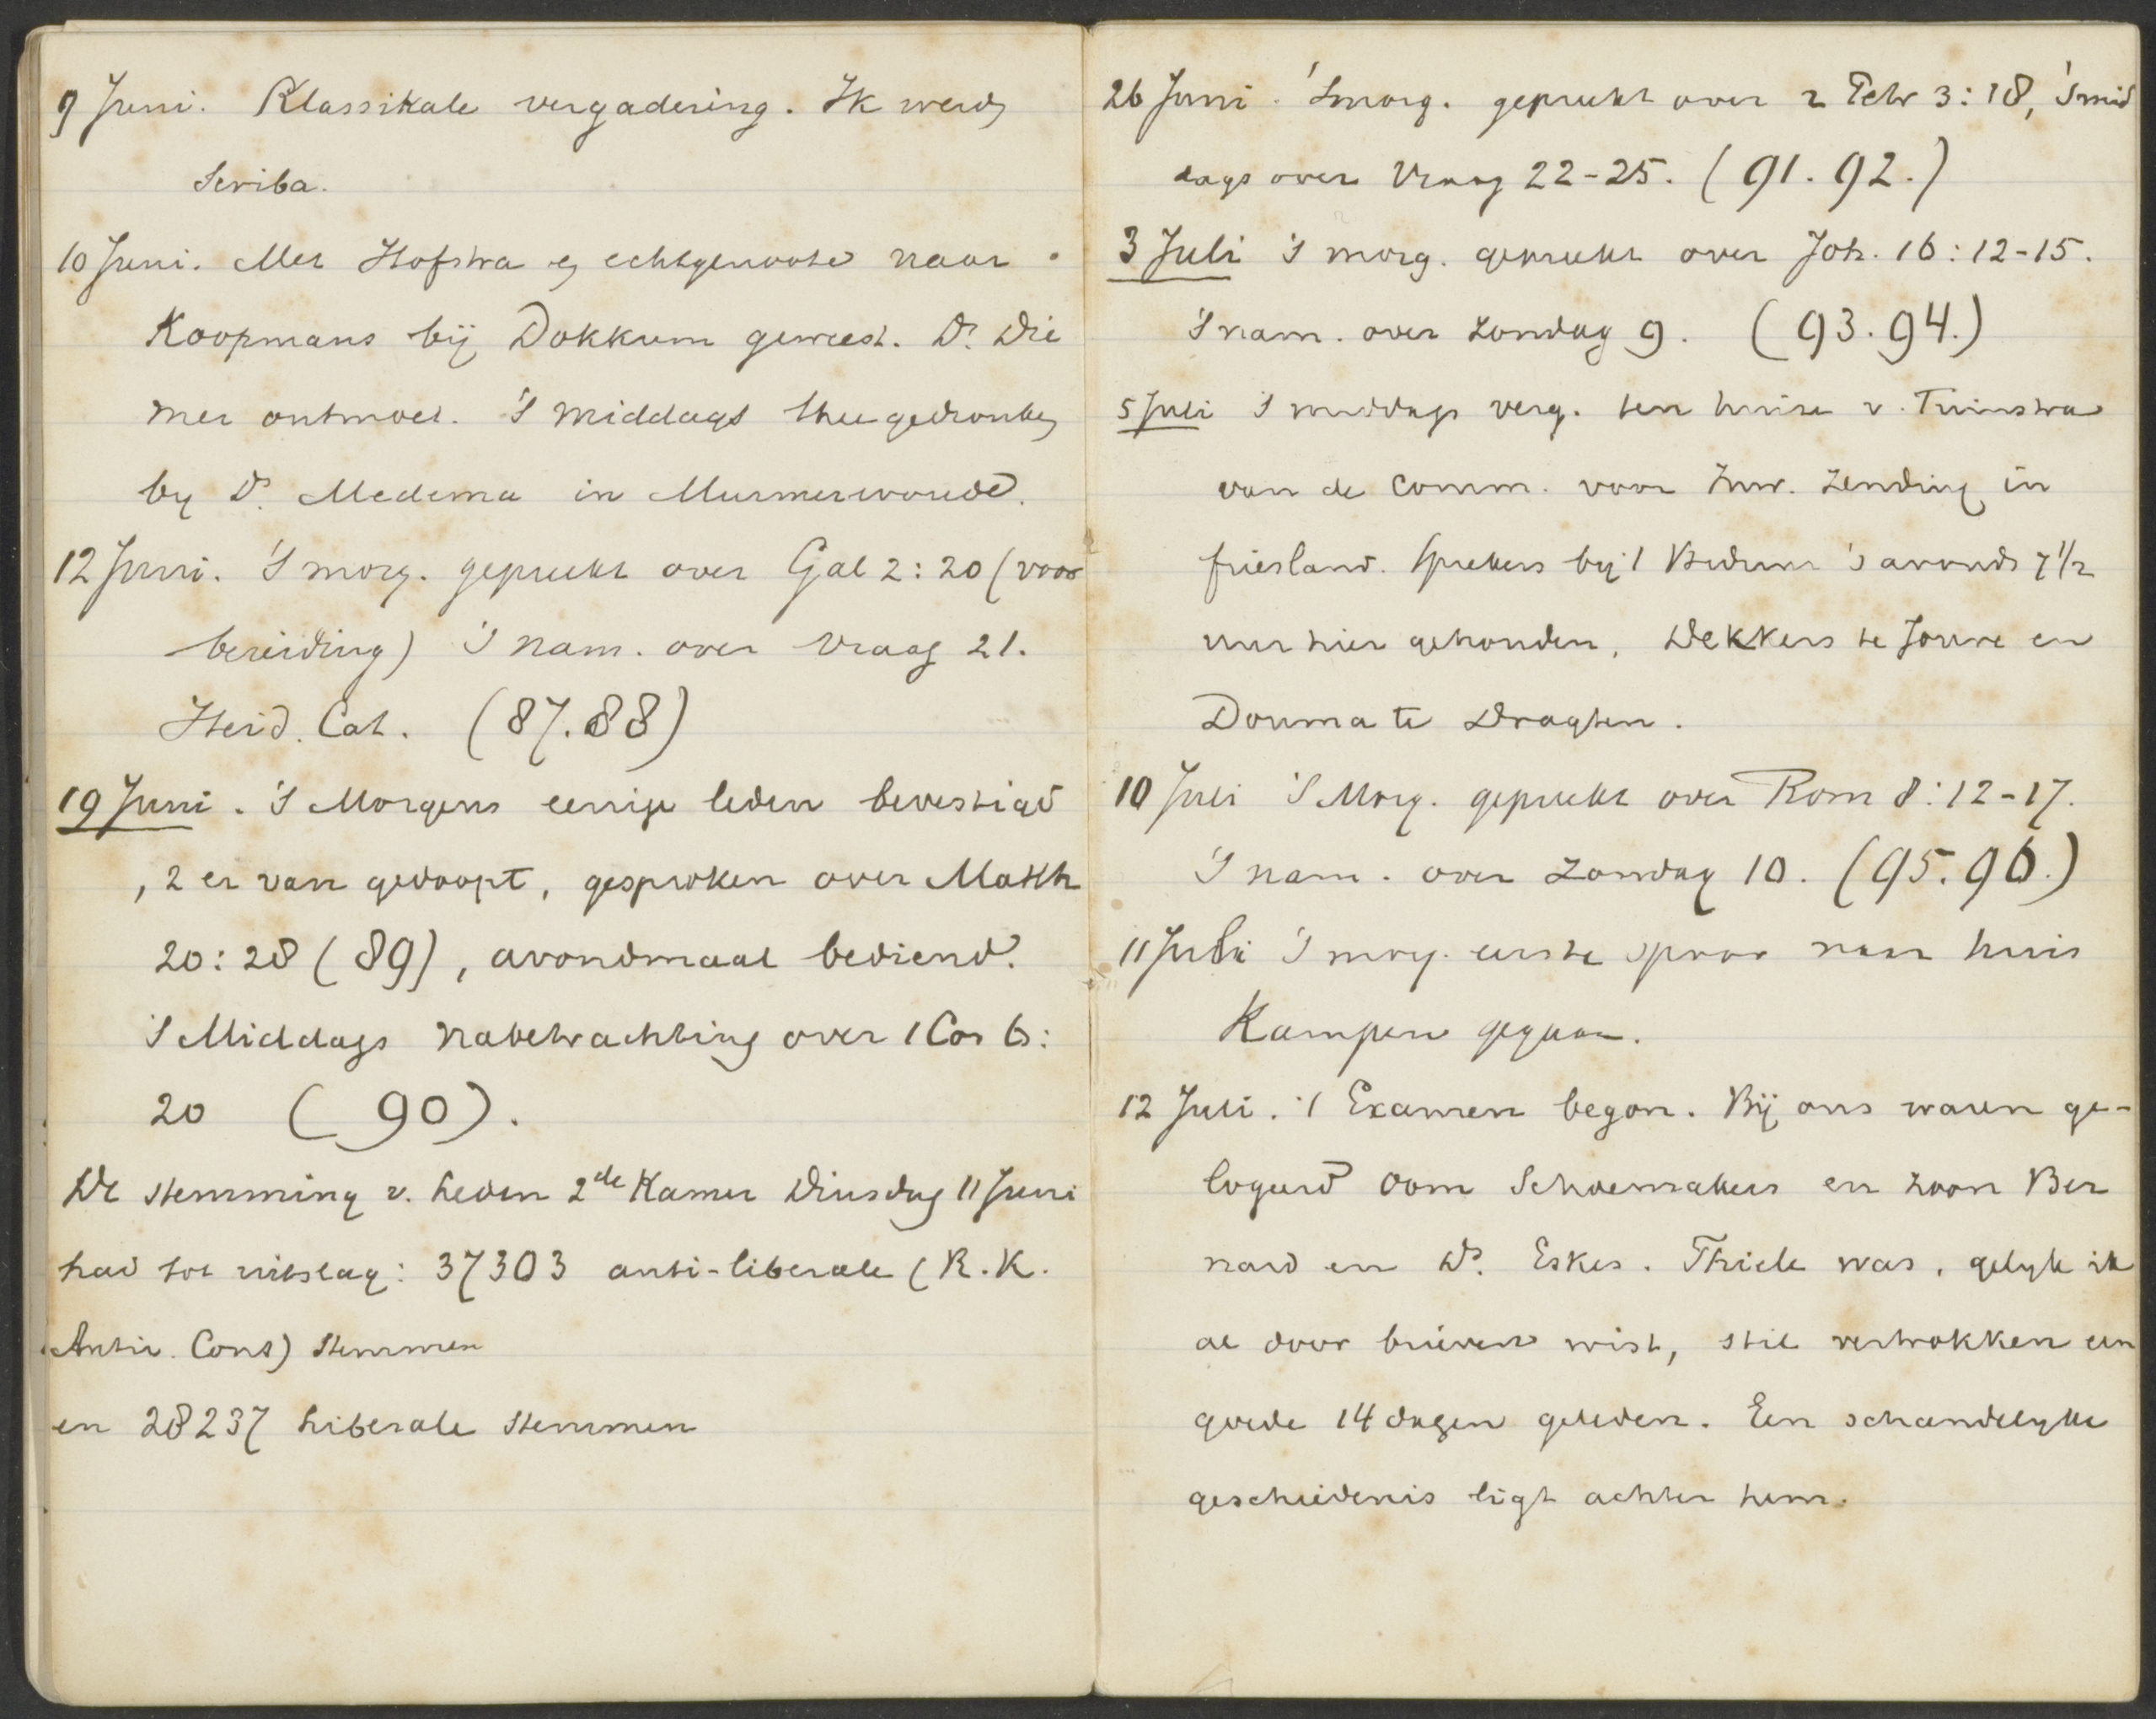 9 Juni. Klassikale vergadering. Ik werd
Scriba.
10 Juni. Met Hofstra en echtgenoote naar
Koopmans bij Dokkum geweest. Ds. Die
mer ontmoet. 's Middags thee gedronken
by Ds. Medema in Murmerwoude.
12 Juni. 's morg. gepreekt over Gal 2:20 (voor
bereiding) 's nam. over Vraag 21.
Heid. Cat. (87.88)
19 Juni. 's Morgens eenige leden bevestigd
, 2 er van gedoopt, gesproken over Matth
20:28 (89), avondmaal bediend.
's Middags nabetrachting over 1 Cor 6:
20 (90).
De stemming v. leden 2de Kamer Dinsdag 11 Juni
had tot uitslag: 37303 anti-liberale (R.K.
Antir. Cons) stemmen
en 28237 liberale stemmen
26 Juni. 'smorg. gepreekt over 2 Petr 3:18, 'smid
dags over Vraag 22-25. (91.92.)
3 Juli 's morg. gepreekt over Joh. 16:12-15.
's nam. over Zondag 9. (93.94.)
5 Juli 's middags verg. ten huize v. Tuinstra
van de Comm. voor Inw. Zending in
friesland. Sprekers bij 't Biduur 's avonds 7 1/2
uur hier gehouden, Dekkers te Joure en
Douma te Dragten.
10 Juli 's Morg. gepreekt over Rom 8:12-17.
's nam. over Zondag 10. (95.96.)
11 Juli 's morg. eerste spoor naar huis
Kampen gegaan.
12 Juli. 't Examen begon. Bij ons waren ge-
logeerd Oom Schoemakers en zoon Ber
nard en Ds. Eskes. Thiele was, gelyk ik
al door brieven wist, stil vertrokken een
goede 14 dagen geleden. Een schandelyke
geschiedenis ligt achter hem.